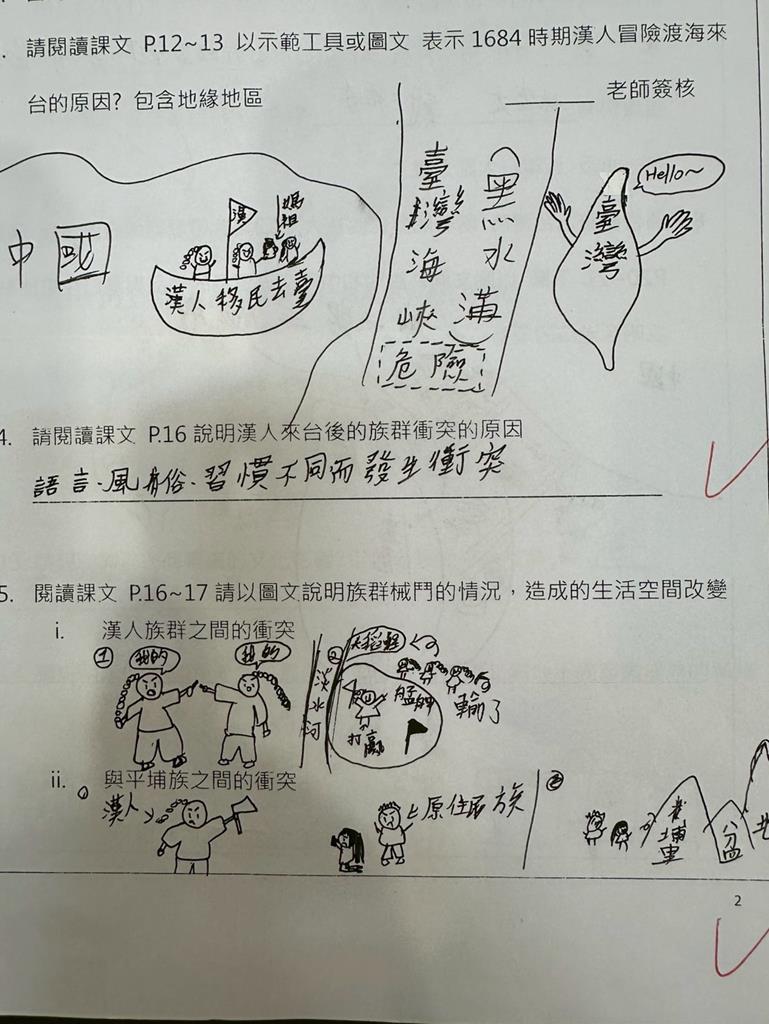 請閱讀課文 P.12~13 以示範工具或圖文 表示1684時期漢人冒險渡海來
台的原因? 包含地緣地區
老師簽核
中國
漢
媽祖
漢人移民去臺
臺灣海峽
黑水溝
危險
Hello~
臺灣
4. 請閱讀課文 P.16 說明漢人來台後的族群衝突的原因
語言、風俗、習慣不同而發生衝突
5. 閱讀課文 P.16~17 請以圖文說明族群械鬥的情況，造成的生活空間改變
i. 漢人族群之間的衝突
①
我的
我的
淡水河
②
大稻埕
艋舺
打贏
輸了
ii. 與平埔族之間的衝突
漢人
原住民族
②
埔里
盆
2